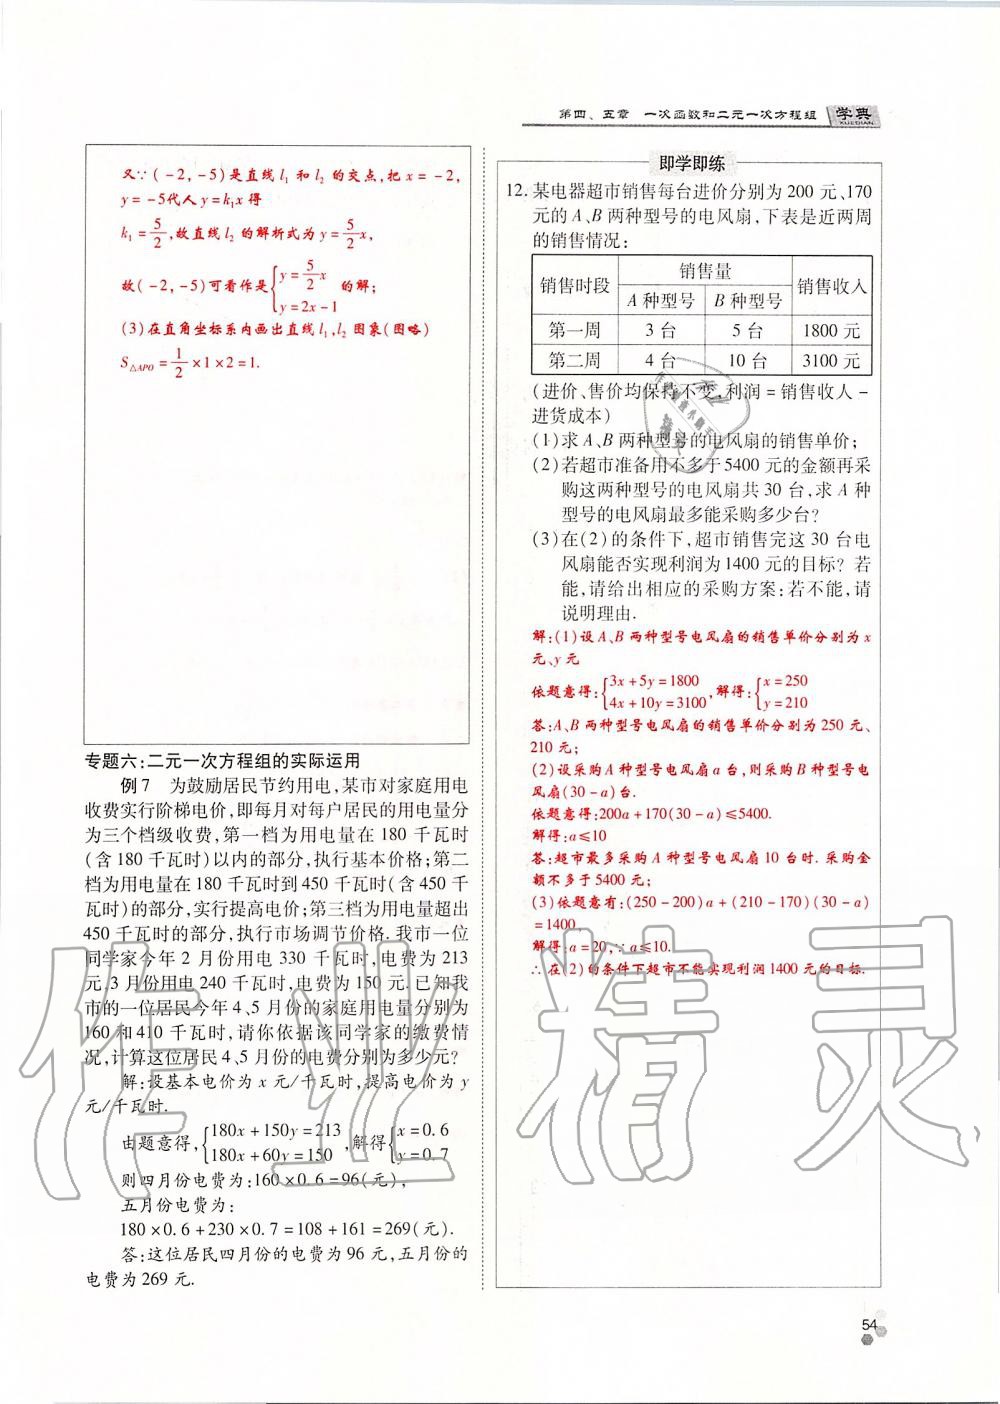 第四、五章 一次函数和二元一次方程组 学典
XUEDIAN
又∵(-2,-5)是直线l₁和l₂的交点,把x=-2,
y=-5代入y=k₁x得
k₁=5/2,故直线l₂的解析式为y=5/2x,
故(-2,-5)可看作是{y=5/2x
y=2x-1 的解;
(3)在直角坐标系内画出直线l₁,l₂图象(图略)
S△APO=1/2×1×2=1.
专题六:二元一次方程组的实际运用
例7 为鼓励居民节约用电,某市对家庭用电
收费实行阶梯电价,即每月对每户居民的用电量分
为三个档级收费,第一档为用电量在180千瓦时
(含180千瓦时)以内的部分,执行基本价格;第二
档为用电量在180千瓦时到450千瓦时(含450千
瓦时)的部分,实行提高电价;第三档为用电量超出
450千瓦时的部分,执行市场调节价格.我市一位
同学家今年2月份用电330千瓦时,电费为213
元,3月份用电240千瓦时,电费为150元.已知我
市的一位居民今年4、5月份的家庭用电量分别为
160和410千瓦时,请你依据该同学家的缴费情
况,计算这位居民4、5月份的电费分别为多少元?
解:设基本电价为x元/千瓦时,提高电价为y
元/千瓦时.
由题意得,{180x+150y=213
180x+60y=150 ,解得{x=0.6
y=0.7
则四月份电费为:160×0.6=96(元),
五月份电费为:
180×0.6+230×0.7=108+161=269(元).
答:这位居民四月份的电费为96元,五月份的
电费为269元.
即学即练
12.某电器超市销售每台进价分别为200元、170
元的A、B两种型号的电风扇,下表是近两周
的销售情况:
销售时段 销售量 销售收入
A种型号 B种型号
第一周 3台 5台 1800元
第二周 4台 10台 3100元
(进价、售价均保持不变,利润=销售收入-
进货成本)
(1)求A、B两种型号的电风扇的销售单价;
(2)若超市准备用不多于5400元的金额再采
购这两种型号的电风扇共30台,求A种
型号的电风扇最多能采购多少台?
(3)在(2)的条件下,超市销售完这30台电
风扇能否实现利润为1400元的目标?若
能,请给出相应的采购方案;若不能,请
说明理由.
解:(1)设A、B两种型号电风扇的销售单价分别为x
元、y元
依题意得:{3x+5y=1800
4x+10y=3100 ,解得:{x=250
y=210
答:A、B两种型号电风扇的销售单价分别为250元、
210元;
(2)设采购A种型号电风扇a台,则采购B种型号电
风扇(30-a)台.
依题意得:200a+170(30-a)≤5400.
解得:a≤10
答:超市最多采购A种型号电风扇10台时.采购金
额不多于5400元;
(3)依题意有:(250-200)a+(210-170)(30-a)
=1400,
解得:a=20,∵a≤10.
∴在(2)的条件下超市不能实现利润1400元的目标.
作业精灵
54